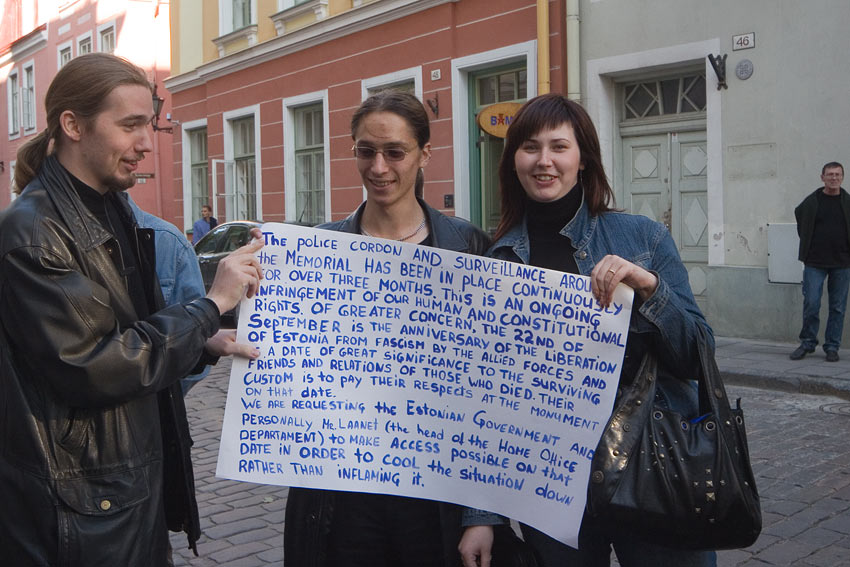 46
48
BAM
The police cordon and surveillance arou
the Memorial has been in place continuously
for over three months. This is an ongoing
infringement of our human and constitutional
rights. Of greater concern, the 22nd of
September is the anniversary of the liberation
of Estonia from fascism by the Allied Forces and
a date of great significance to the surviving
friends and relations of those who died. Their
custom is to pay their respects at the monument
on that date.
We are requesting the Estonian Government and
personally Mr. Laanet (the head of the Home Office
Departament) to make access possible on that
date in order to cool the situation down
rather than inflaming it.